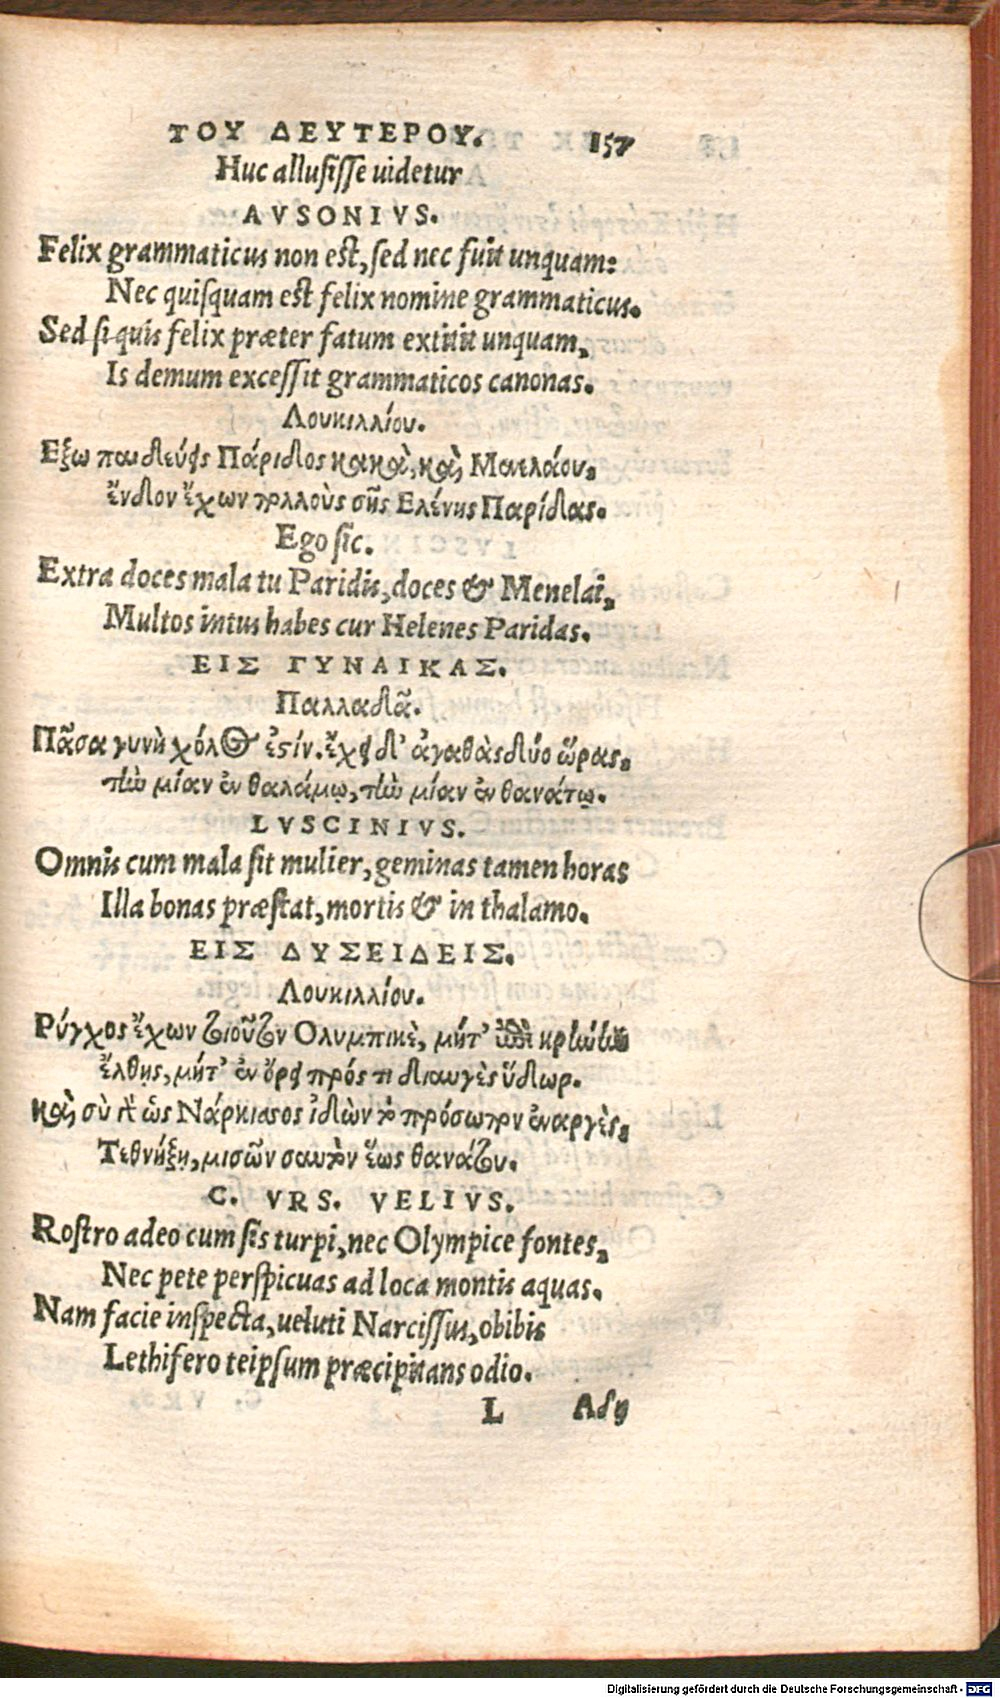 ΤΟΥ ΔΕΥΤΕΡΟΥ. 157
Huc allusisse uidetur
AVSONIVS.
Felix grammaticus non est, sed nec fuit unquam:
Nec quisquam est felix nomine grammaticus.
Sed si quis felix præter fatum extitit unquam,
Is demum excessit grammaticos canonas.
Λουκιλλίου.
Εξω παιδεύεις Πάριδος κακὰ, καὶ Μενελάου,
ἔνδον ἔχων πολλοὺς σῆς Ελένης Παρίδας.
Ego sic.
Extra doces mala tu Paridis, doces & Menelai,
Multos intus habes cur Helenes Paridas.
ΕΙΣ ΓΥΝΑΙΚΑΣ.
Παλλαδᾶ.
Πᾶσα γυνὴ χόλος ἐστίν. ἔχει δ' ἀγαθὰς δύο ὥρας,
τὴν μίαν ἐν θαλάμῳ, τὴν μίαν ἐν θανάτῳ.
LVSCINIVS.
Omnis cum mala sit mulier, geminas tamen horas
Illa bonas præstat, mortis & in thalamo.
ΕΙΣ ΔΥΣΕΙΔΕΙΣ.
Λουκιλλίου.
Ρύγχος ἔχων τοιοῦτον Ολυμπικὲ, μήτ' ἐπὶ
ἔλθῃς, μήτ' ἐν ὄρει πρός τι διαυγὲς ὕδωρ.
καὶ σὺ γὰρ ὡς Νάρκισσος ἰδὼν τὸ πρόσωπον ἐναργὲς,
Τεθνήξῃ, μισῶν σαυτὸν ἕως θανάτου.
C. VRS. VELIVS.
Rostro adeo cum sis turpi, nec Olympice fontes,
Nec pete perspicuas ad loca montis aquas.
Nam facie inspecta, ueluti Narcissus, obibis
Lethifero teipsum præcipitans odio.
L Αδη
Digitalisierung gefördert durch die Deutsche Forschungsgemeinschaft - DFG